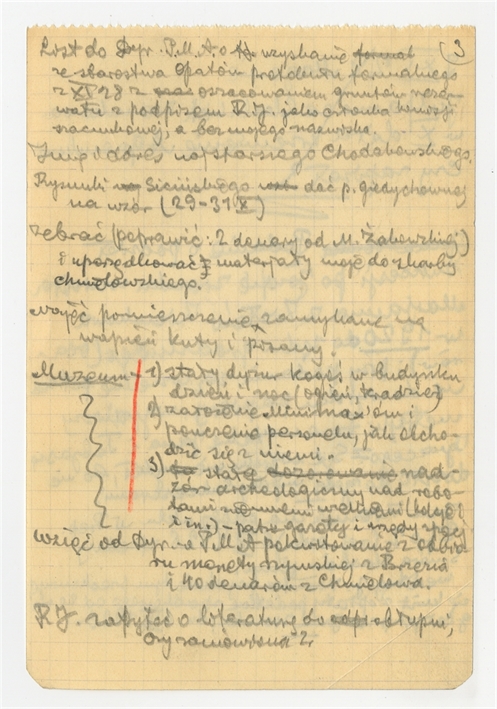 List do Dyr. P.M.A. o wzyskanie formal (3
ze starostwa Opatów protokułu formalnego
z XI 28 z oszacowaniem gruntów rezer-
watu z podpisem R.J. jako członka komisji
szacunkowej, a bez mojego nazwiska.
Imię i adres najstarszego Chodakowskiego.
Rysunki Sicińskiego dać p. Giedychownej
na wzór (29-31 X)
zebrać (poprawić: 2 denary od M. Żakowskiej)
i uporządkować materjały moje do skarbu
chmielowskiego.
wziąć pomieszczenie zamykane na
wapień kuty i pisany.
Muzeum - 1) stały dyżur kogoś w budynku
dzień i noc (ogień, kradzież)
2) założenie Minimax'ów i
pouczenie personelu, jak obcho-
dzić się z niemi.
3) stałe dozorowanie nad-
zór archeologiczny nad robo-
tami ziemnemi wielkiemi (kolej
i in.) - patrz gazoty i
wziąć od Dyr. P.M.A pokwitowanie z odbio-
ru monety rzymskiej z Brzezia
i 40 denarów z Chmielowa.
R.J. zapytać o literaturę do obłupni,
czy zamówiona?